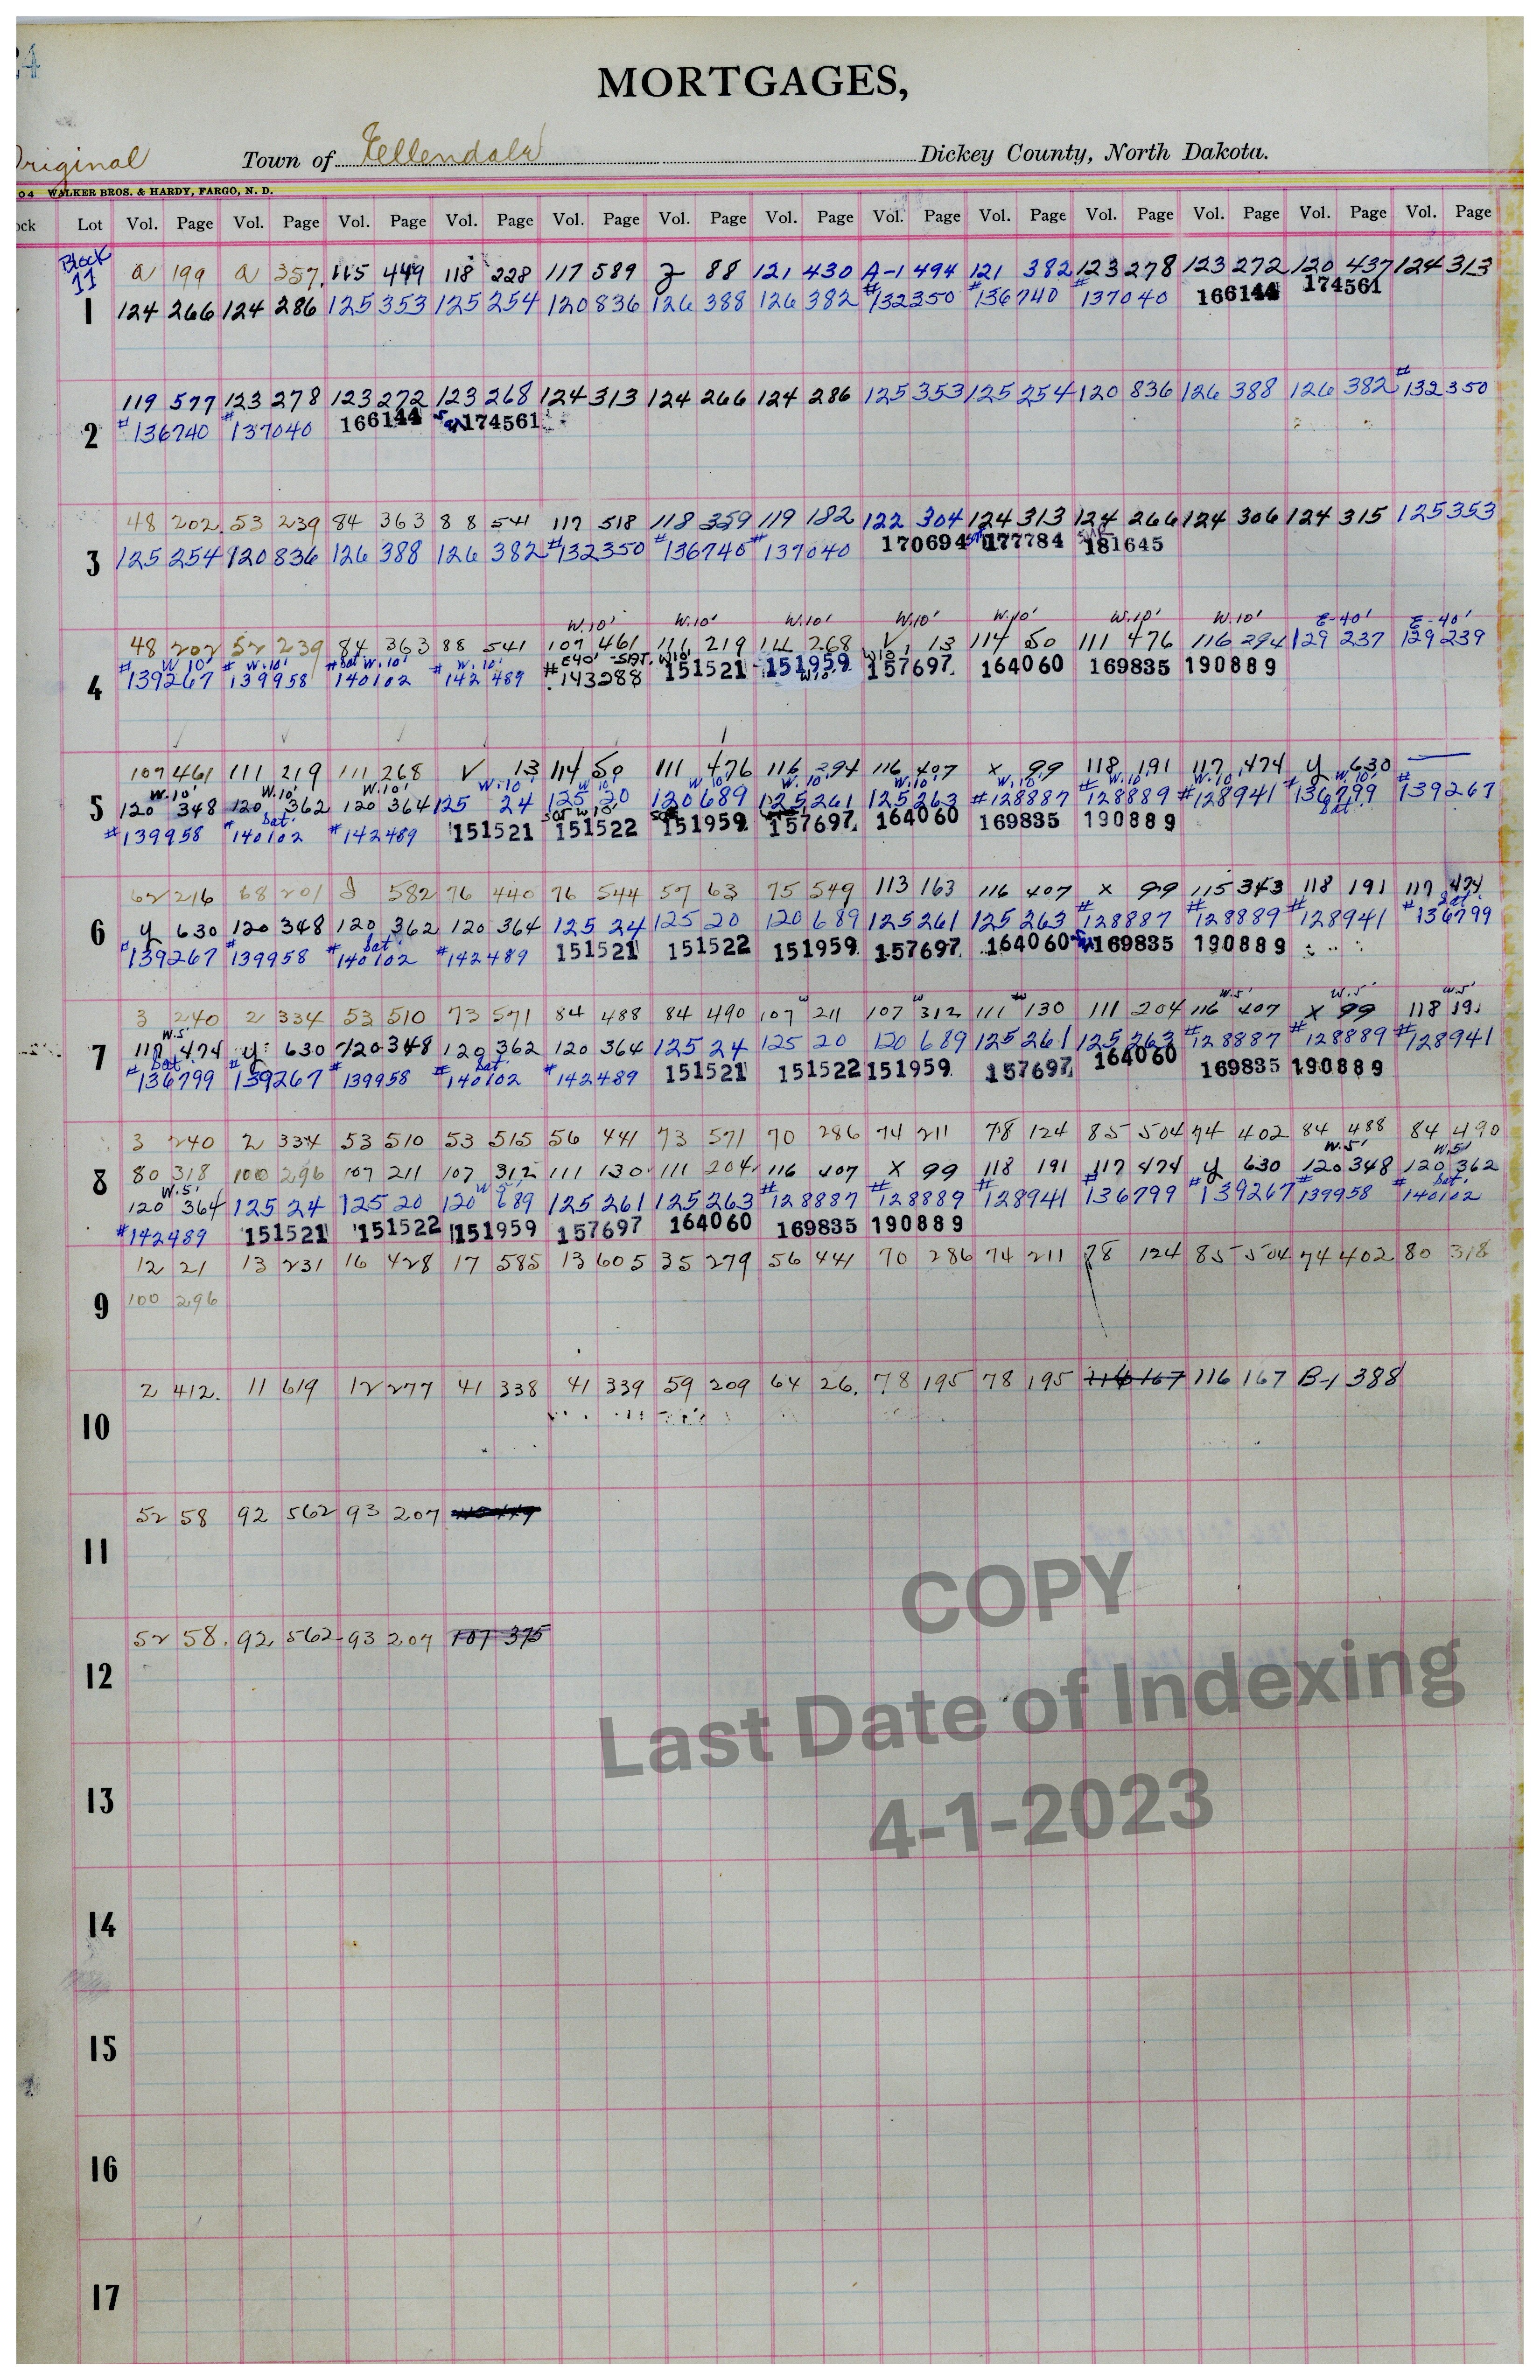 24
MORTGAGES,
Original Town of Ellendale Dickey County, North Dakota.
04 WALKER BROS. & HARDY, FARGO, N. D.
ock Lot Vol. Page Vol. Page Vol. Page Vol. Page Vol. Page Vol. Page Vol. Page Vol. Page Vol. Page Vol. Page Vol. Page Vol. Page Vol. Page
Block 11
1
a 199 a 357. 115 449 118 228 117 589 Z 88 121 430 A-1 494 121 382 123 278 123 272 120 437 124 313
124 266 124 286 125 353 125 254 120 836 126 388 126 382 #132350 #136740 #137040 166144 174561
2
119 577 123 278 123 272 123 268 124 313 124 266 124 286 125 353 125 254 120 836 126 388 126 382 #132350
#136740 #137040 166144 174561
3
48 202. 53 239 84 363 88 541 117 518 118 359 119 182 122 304 124 313 124 266 124 306 124 315 125 353
125 254 120 836 126 388 126 382 #132350 #136740 #137040 170694 177784 181645
W.10' W.10' W.10' W.10' W.10' W.10' W.10' E-40' E-40'
4
48 202 52 239 84 363 88 541 107 461 111 219 111 268 V 13 114 50 111 476 116 294 129 237 129 239
W 10' W.10' Sat W.10' W.10' E40' -SAT. W10' W10'
#139267 #139958 #140102 #142489 #143288 151521 151959 157697 164060 169835 190889
W10'
5
107 461 111 219 111 268 V 13 114 50 111 476 116 294 116 407 X 99 118 191 117 474 y 630
W.10' W.10' W.10' W.10' W 10' W 10' W.10' W.10' W.10' W.10' W.10' W.10'
120 348 120 362 120 364 125 24 125 20 120 689 125 261 125 263 #128887 #128889 #128941 #136799 #139267
Sat. SAT W 10' Sat.
#139958 #140102 #142489 151521 151522 151959 157697 164060 169835 190889
6
62 216 68 201 J 582 76 440 76 544 57 63 75 549 113 163 116 407 X 99 115 343 118 191 117 474
Sat.
y 630 120 348 120 362 120 364 125 24 125 20 120 689 125 261 125 263 #128887 #128889 #128941 #136799
Sat.
#139267 #139958 #140102 #142489 151521 151522 151959 157697 164060 169835 190889
W W W W.5' W.5' W.5'
7
3 240 2 334 53 510 73 571 84 488 84 490 107 211 107 312 111 130 111 204 116 407 X 99 118 191
W.5'
117 474 y 630 120 348 120 362 120 364 125 24 125 20 120 689 125 261 125 263 #128887 #128889 #128941
Sat Sat.
#136799 #139267 #139958 #140102 #142489 151521 151522 151959 157697 164060 169835 190889
8
3 240 2 334 53 510 53 515 56 441 73 571 70 286 74 211 78 124 85 504 74 402 84 488 84 490
W.5' W.5'
80 318 100 296 107 211 107 312 111 130 111 204 116 407 X 99 118 191 117 474 y 630 120 348 120 362
W.5' W 5' Sat.
120 364 125 24 125 20 120 689 125 261 125 263 #128887 #128889 #128941 #136799 #139267 #139958 #140102
#142489 151521 151522 151959 157697 164060 169835 190889
9
12 21 13 231 16 428 17 585 13 605 35 279 56 441 70 286 74 211 78 124 85 504 74 402 80 318
100 296
10
2 412. 11 619 12 277 41 338 41 339 59 209 64 26. 78 195 78 195 116 167 116 167 B-1 388
11
52 58 92 562 93 207
12
52 58. 92 562 93 207 107 375
13
14
15
16
17
COPY
Last Date of Indexing
4-1-2023